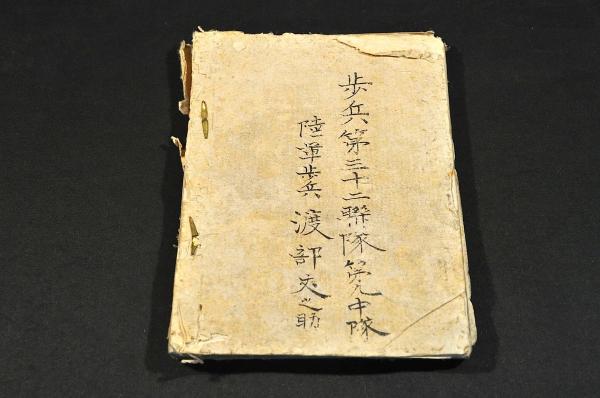 歩兵第三十二聯隊第九中隊
陸軍歩兵 渡部 之助